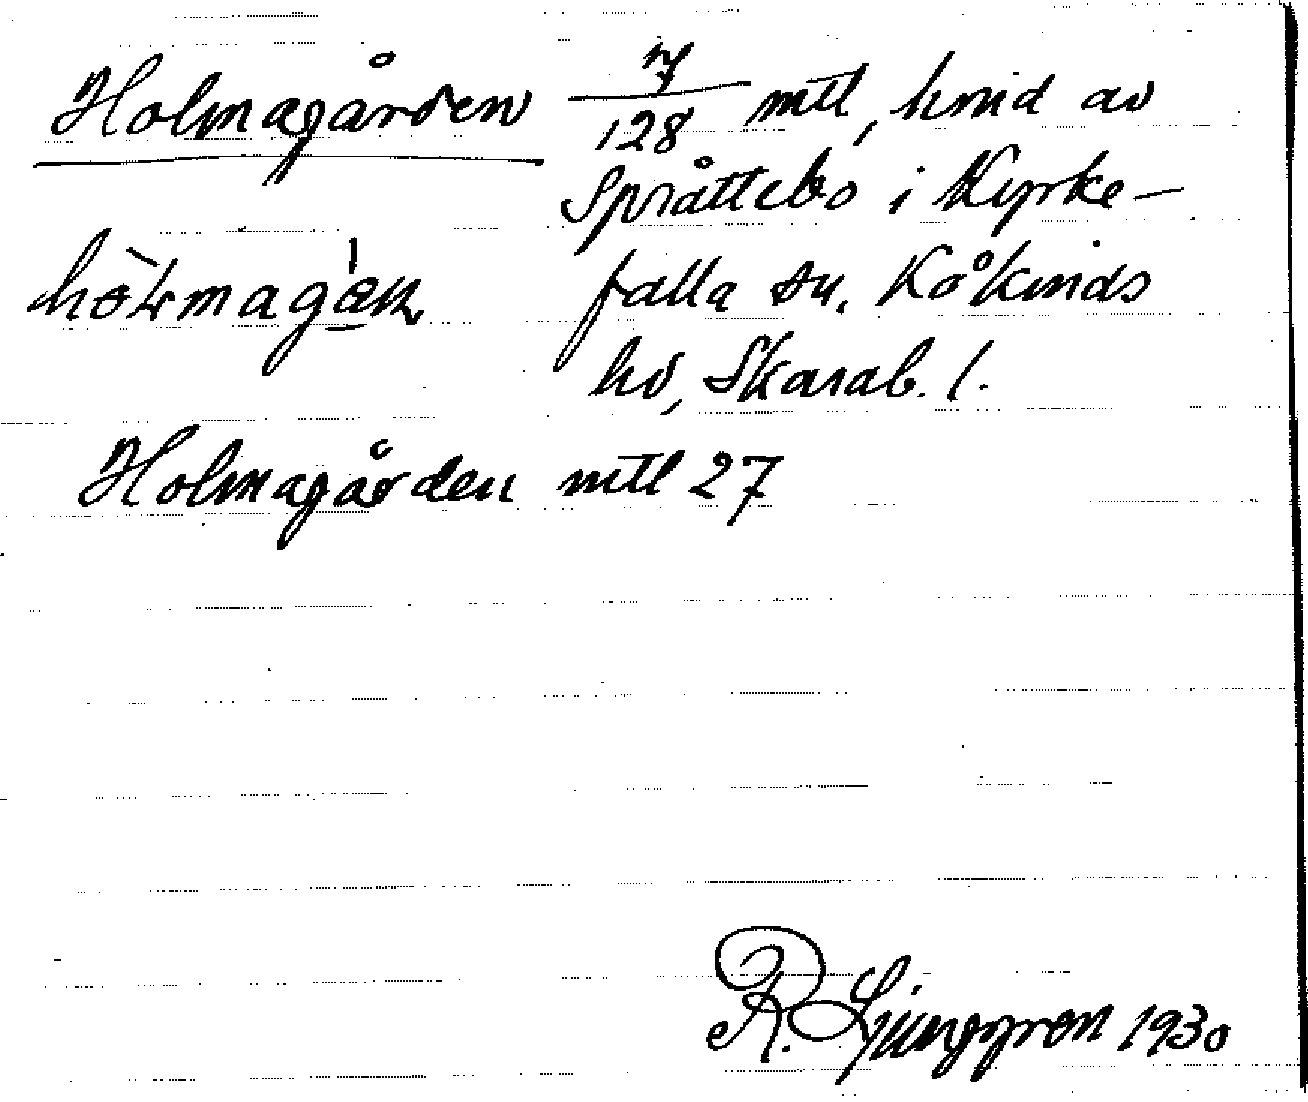 Holmagården 7/128 mtl, hmd av
Språttebo i Kyrke-
falla sn. Kåkinds
hd, Skarab. l.
Holmagården mtl 27
R. Ljunggren 1930